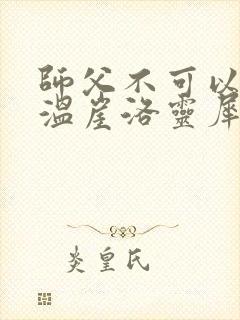 師父不可以
溫崖洛靈犀
炎皇氏